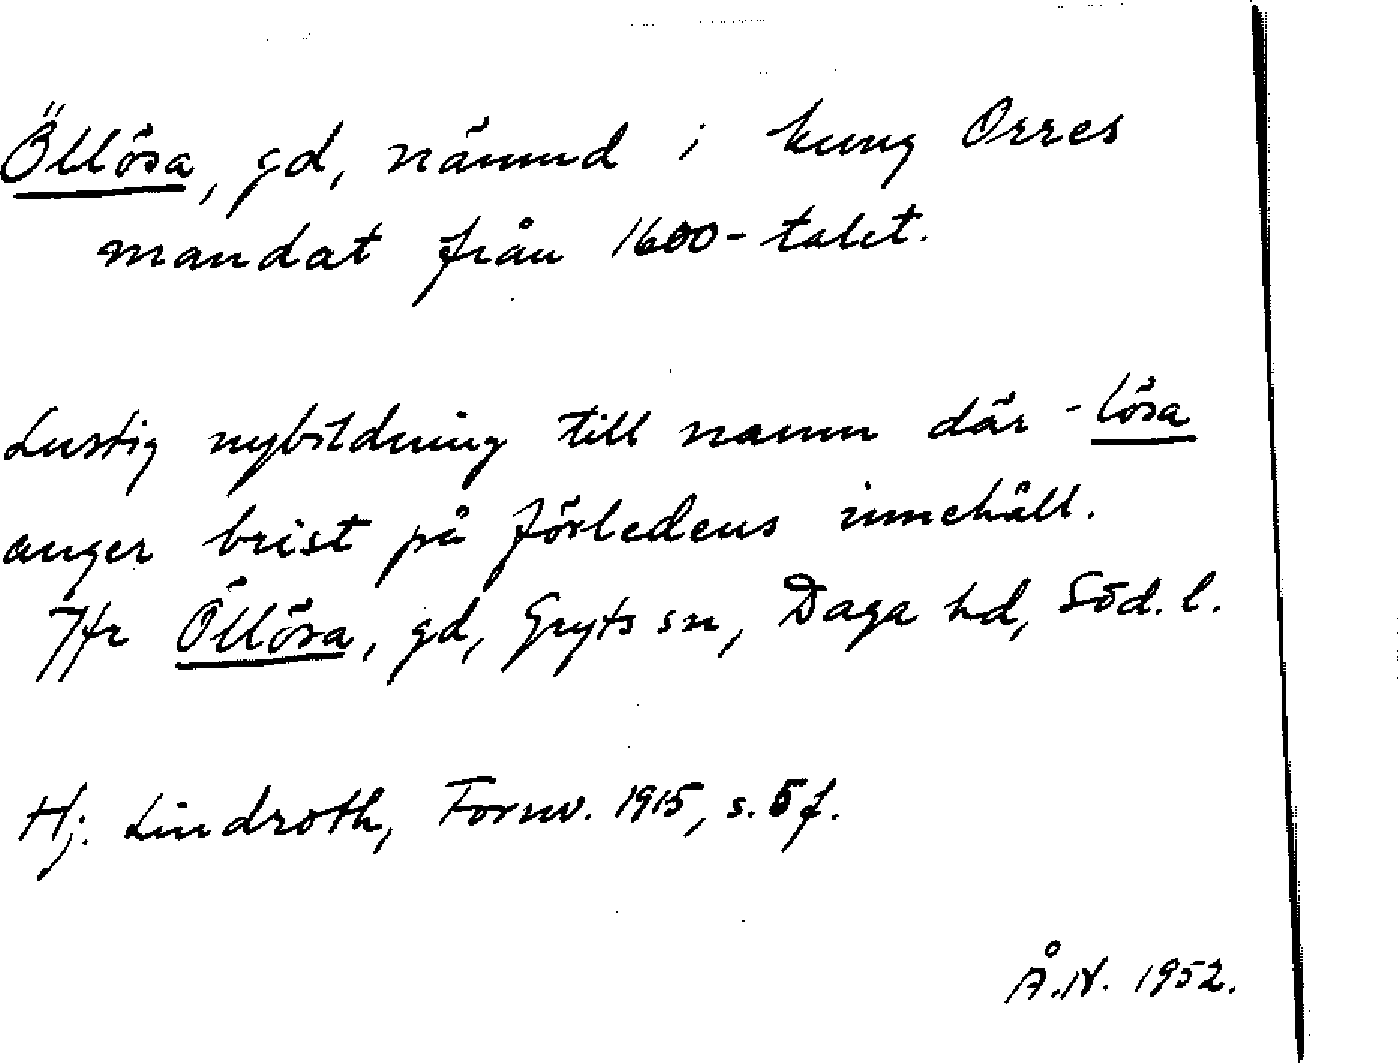 Öllösa, gd, nämnd i kung Orres
mandat från 1600-talet.
Lustig nybildning till namn där -lösa
anger brist på förledens innehåll.
Jfr Öllösa, gd, Gryts sn, Daga hd, Söd. l.
Hj. Lindroth, Fornv. 1915, s. 5 f.
Å.N. 1952.